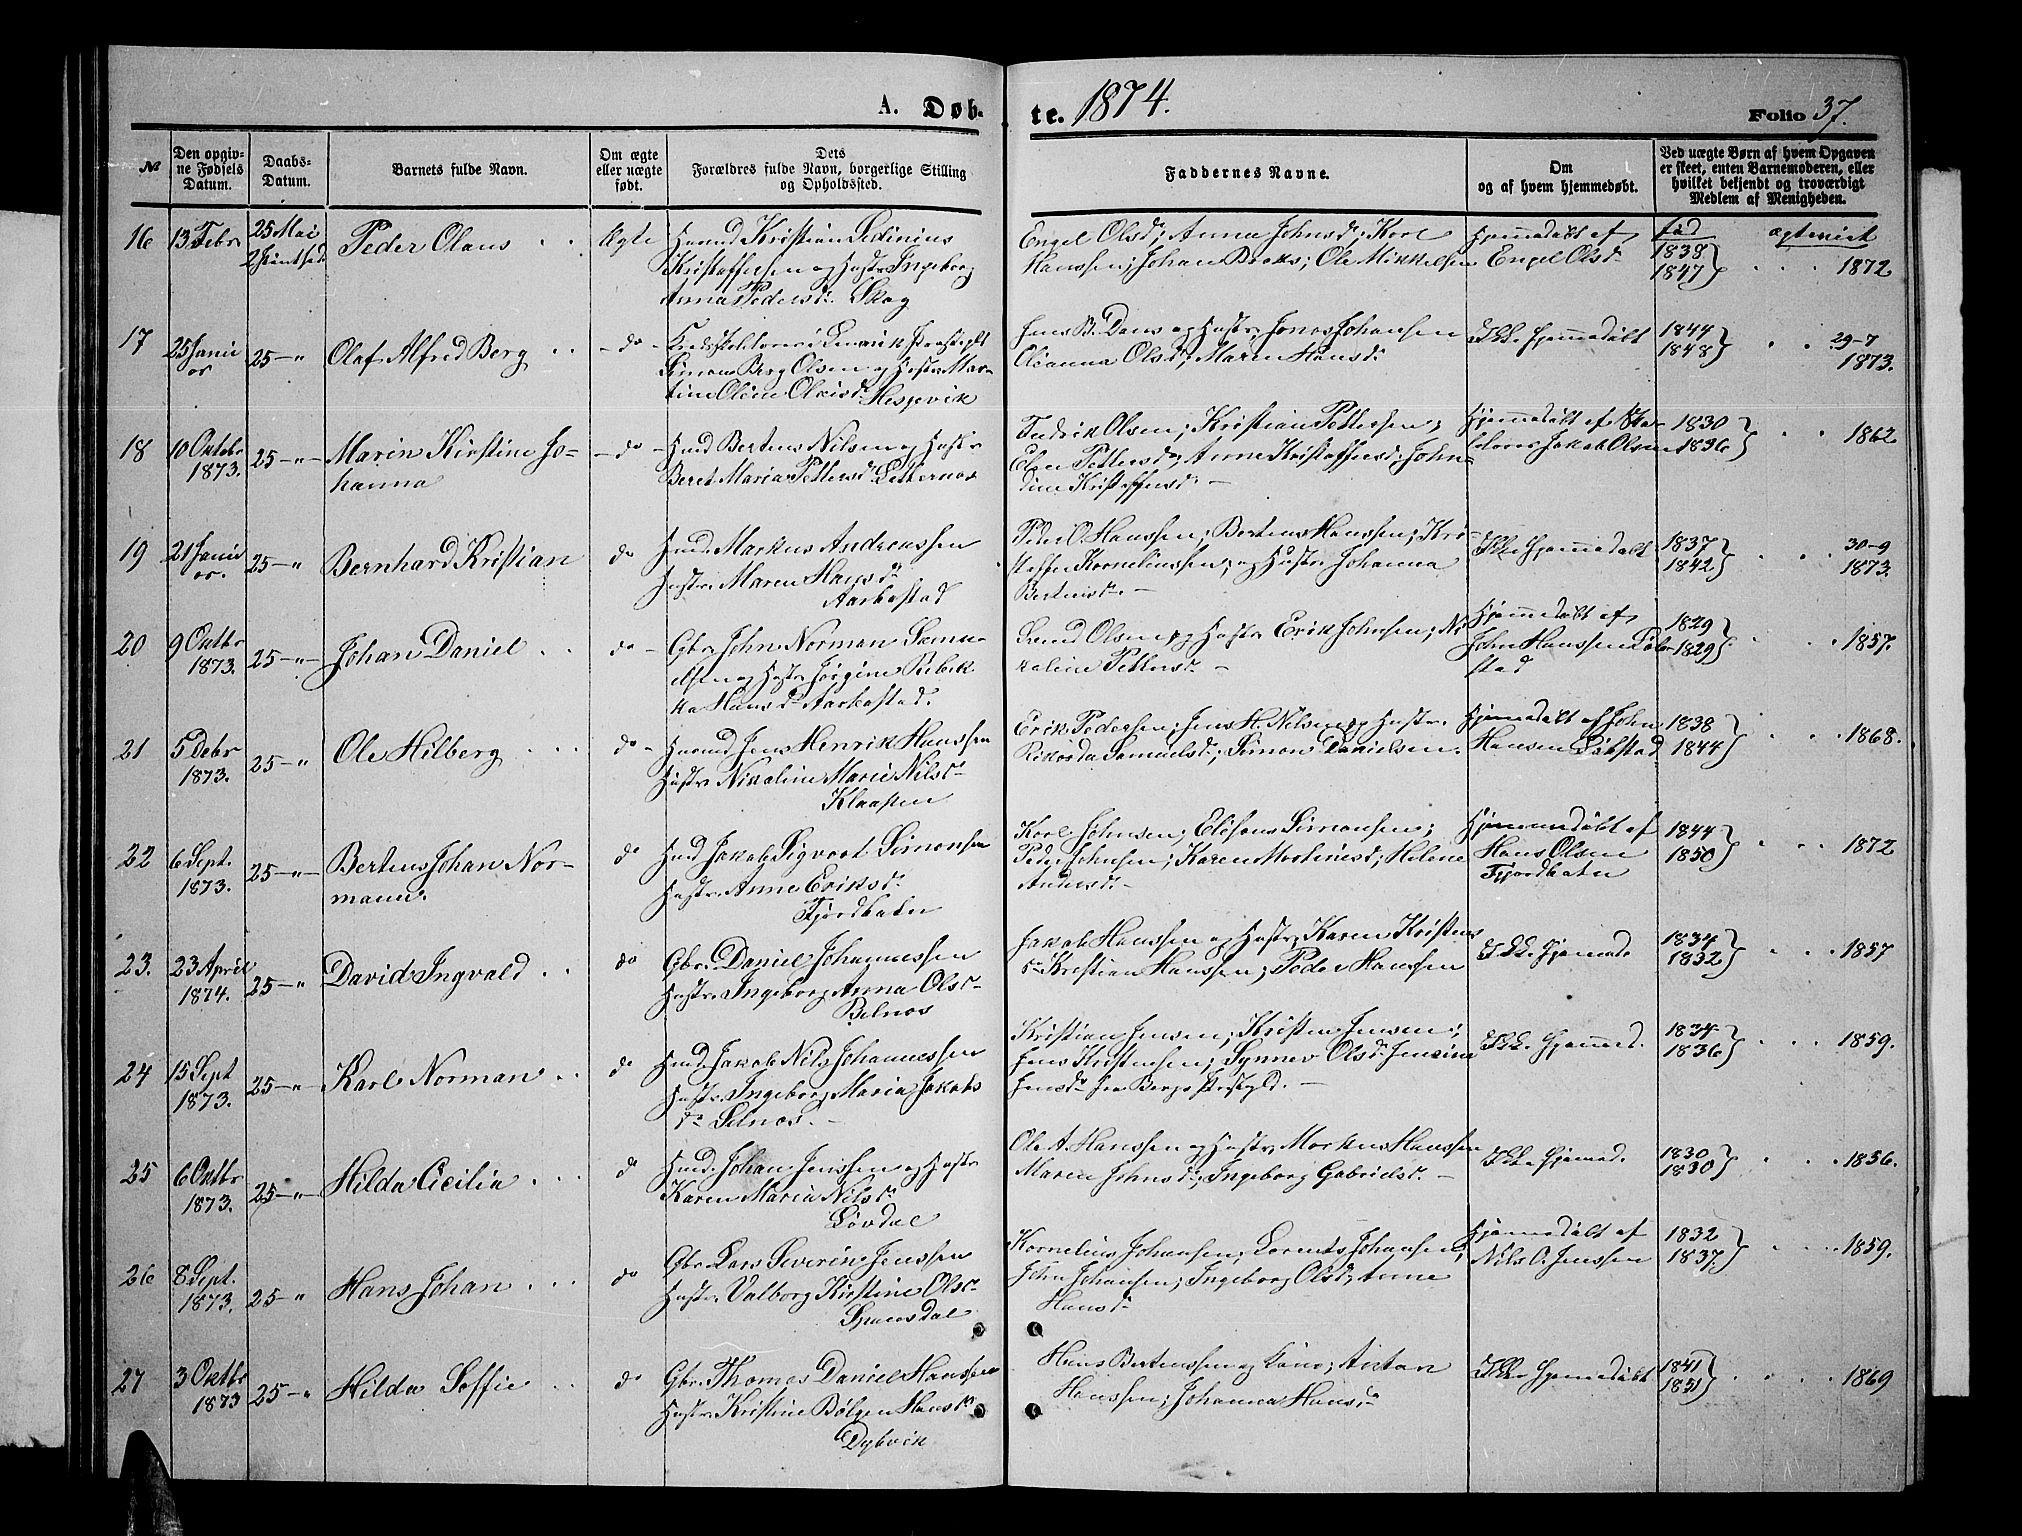 A. Døb-
te. 1874.
Folio 37.
№
Den opgiv-
ne Fødsels
Datum.
Daabs-
Datum.
Barnets fulde Navn.
Om ægte
eller uægte
født.
Dets
Forældres fulde Navn, borgerlige Stilling
og Opholdssted.
Faddernes Navne.
Om
og af hvem hjemmedøbt.
Ved uægte Børn af hvem Opgaven
er skeet, enten Barnemoderen, eller
hvilket bekjendt og troværdigt
Medlem af Menigheden.
16 13 Febr 25 Mai Peder Olaus Ægte Kristian
Kristoffersen og Hustr Ingeborg
Anna Pedersd. Skog
Engel Olsd; Anna Johnsd; Karl
Hanssen; Johan Broks; Ole Mikkelsen
Hjemmedøbt af
Engel Olsd
fød ægteviet
1838
1847 1872
17 25 Janu
ar 25 — " Olaf Alfred Berg — do —
Simon Berg Olsen og Hustr Mar-
tine Oline Olaisd. Hesjevik
Jens B. Dons og Hustr; Jonas Johansen
Oleanna Olsd; Maren Hansd
Ikke Hjemmedøbt
1844
1848 29-7
1873.
18 10 Oktbr
1873. 25 — " Maren Kirstine Jo-
hanna — do — Hmd Bertens Nilsen og Hustr
Beret Maria Pettersd.
Fredrik Olsen; Kristian Pettersen;
Elen Pettersd; Anne Kristoffersd; John-
dine Kristoffersd. —
Hjemmedøbt af Sko-
lelærer Jakob Olsen
1830
1836 1862
19 21 Janu
ar. 25 — " Bernhard Kristian do Hmd. Markus Andreassen
Hustr. Maren Hansd
Aarbostad
Peder O. Hanssen; Bertens Hanssen; Kri-
stoffer Kornelinssen; og Hustr Johanna
Bertensd. —
Ikke Hjemmedøbt
1837
1842 30-9
1873.
20 9 Oktbr
1873. 25 — " Johan Daniel do — Gbr. John Norman Samu-
elsen og Hustr Jørgine Rebek-
ka Hansd Aarbostad.
Olsen og Hustr Erik Johnsen; Ni-
kaline Pettersd. —
Hjemmedøbt af
John Hanssen Løb-
stad
1829
1829 1857.
21 5 Debr
1873. 25 — " Ole Hilberg do — Jens Henrik Hanssen
Hustr Nikoline Marie Nilsd.
Klaapen
Erik Pedersen; Jens H. Nilsen og Hustr.
Rikarda Samuelsd; Simon Danielsen.
Hjemmedøbt af John
Hansen Løbstad
1838
1844 1868.
22 6 Sept.
1873. 25 — " Bertens Johan Nor-
mann. do Hmd Jakob Sigvart Simonsen
Hustr. Anne Eriksd.
Fjordbotn
Karl Johnsen; Elisæus Simonsen;
Peder Johnsen; Karen Martinesd; Helene
Andersd. —
Hjemmedøbt af
Hans Olsen
Fjordbotn
1844
1850 1872
23. 23 April
1874. 25 — " David Ingvald do Gbr. Daniel Johannessen
Hustr. Ingeborg Anna Olsd.
Selnæs
Jakob Hanssen og Hustr, Karen Kristens
d. Kristian Hanssen; Peder Hanssen
Ikke Hjemmed.
1834
1832 1857
24 15 Sept
1873. 25 — " Karl Norman do Hmd. Jakob Nils Johannessen
Hustr. Ingeborg Maria Jakobs
d. Selnæs. —
Kristian Jensen; Kristen Jensen;
Jens Kristensen; Synnev Olsd. Jensine
Jensd. fra Bergs Præstgjld. —
Ikke Hjemmed.
1834
1836 1859.
25 6 Oktbr
1873. 25 — " Hilda Cicilia do Hmd. Johan Jenssen og Hustr
Karen Maria Nilsd
Løvdal
Ole A. Hanssen og Hustr, Markus Hanssen
Maren Johnsd; Ingeborg Gabrielsd. —
Ikke Hjemmed.
1830
1830 1856.
26 8 Sept.
1873. 25 — " Hans Johan do Gbr. Lars Severin Jenssen
Hustr. Valborg Kirstine Olsd.
Spansdal
Kornelius Johansen; Lorents Johansen;
John Johansen; Ingeborg Olsd; Anne
Hansd
Hjemmedøbt af
Nils O. Jenssen
1832
1837. 1859.
27 3 Oktbr
1873 25 — " Hilda Soffie do Gbr. Thomas Daniel Hanssen
Hustr. Kristine Bølgen Hansd
Dybvik
Hans Bertenssen og Kone; Anton
Hanssen; Johanna Hansd
Ikke Hjemmedøbt
1841
1851 1869